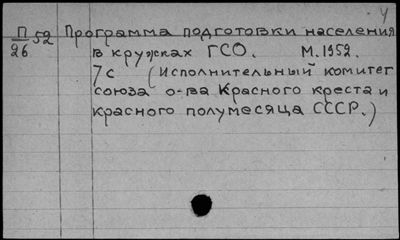 У
П/26 52 Программа подготовки населения
в кружках ГСО. М.1952.
7с (Исполнительный комитет
союза о-ва Красного креста и
красного полумесяца СССР.)